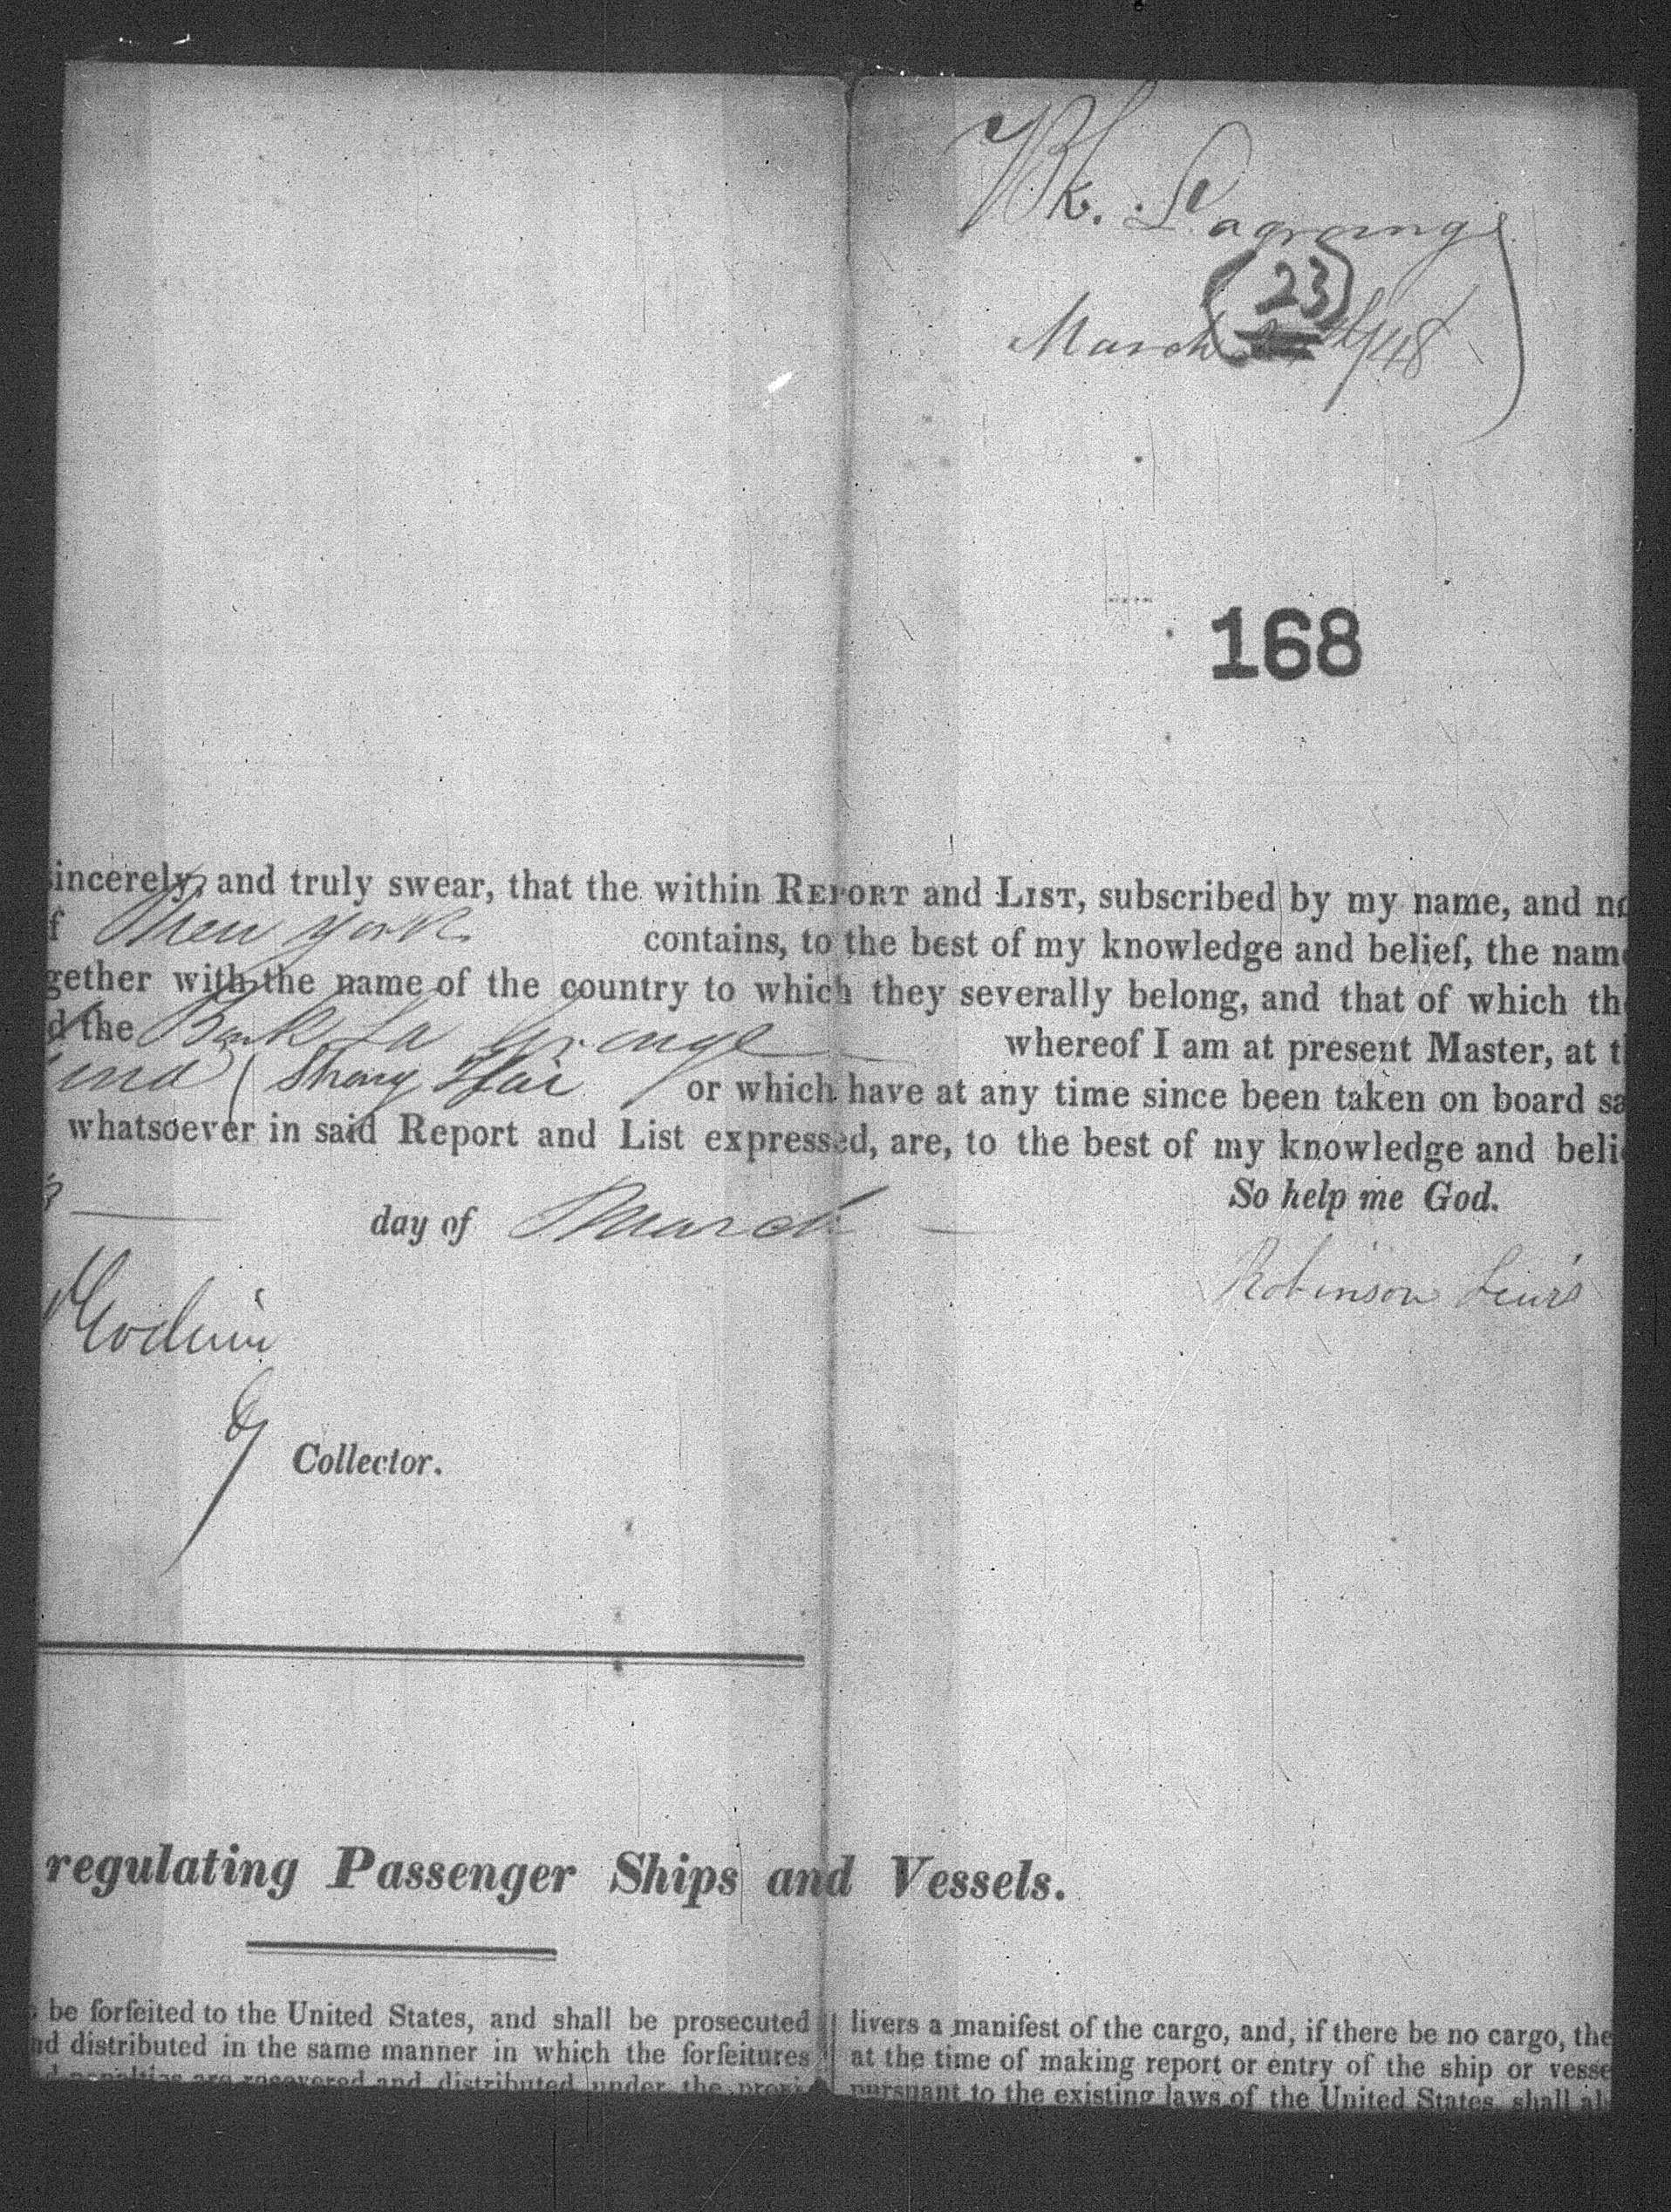 Bk. Lagrange
(23)
March /48
168
sincerely, and truly swear, that the within REPORT and LIST, subscribed by my name, and no
f New York contains, to the best of my knowledge and belief, the name
gether with the name of the country to which they severally belong, and that of which th
d the Bark La Grange whereof I am at present Master, at t
( Shang Hai or which have at any time since been taken on board sa
whatsoever in said Report and List expressed, are, to the best of my knowledge and beli
So help me God.
day of March
Robinson Lewis
Collector.
regulating Passenger Ships and Vessels.
be forfeited to the United States, and shall be prosecuted
nd distributed in the same manner in which the forfeitures
d penalties are recovered and distributed under the provi
livers a manifest of the cargo, and, if there be no cargo, the
at the time of making report or entry of the ship or vesse
pursuant to the existing laws of the United States, shall al